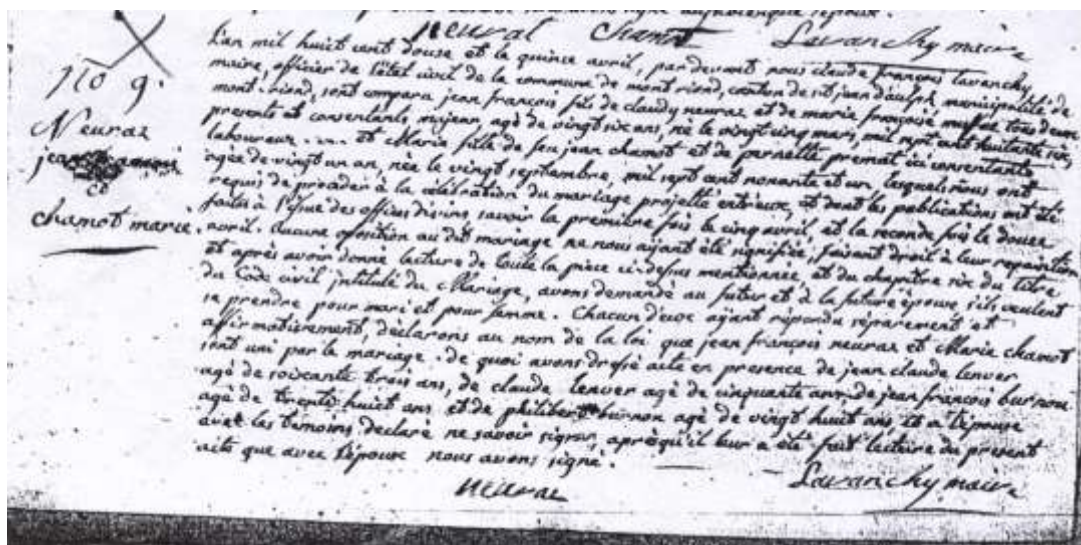 neural chamot Lavanchy maire
L'an mil huit cent douse et le quince avril, par devant nous claude françois lavanchy
maire, officier de l'état civil de la commune de mont riond, canton de st jean d'aulph, municipalité de
mont-riond, sont compara jean françois fils de claudy neuraz et de marie françoise tous deux
presents et consentants, majeur, agé de vingt six ans, né le vingt cinq mars, mil sept cent huitante six,
laboureur ..... et Marie fille de feu jean chamot et de pernette premat ici consentante
agée de vingt un an, née le vingt septembre, mil sept cent nonante et un, lesquels nous ont
requis de proceder à la célébration du mariage projetté entr'eux, et dont les publications ont été
faites à l'issue des offices divins, savoir la première fois le cinq avril, et la seconde fois le douse
avril. Aucune oposition au dit mariage ne nous ayant été signifiée, faisant droit à leur requisition
et après avoir donné lecture de toute la pièce ci-dessus mentionnée, et du chapitre six du titre
du Code civil intitulé du Mariage, avons demandé au futur et à la future épouse, s'ils veulent
se prendre pour mari et pour femme. Chacun d'eux ayant répondu séparement et
affirmativement, déclarons au nom de la loi que jean françois neuraz et Marie chamot
sont uni par le mariage. de quoi avons dressé acte en presence de jean claude lenver
agé de soixante trois ans, de claude lenver agé de cinquante ans, de jean françois burnon
agé de trente huit ans et de philibert burnon agé de vingt huit ans, et a l'épouse
avec les témoins, declaré ne savoir signer, après qu'il leur a été fait lecture du present
acte que avec l'époux nous avons signé.
neuraz Lavanchy maire
n° 9.
Neuraz
jean
et
chamot marie.